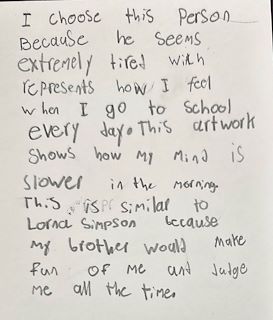 I choose this Person
Because he seems
extremely tired wich
represents how I feel
when I go to school
every day. This artwork
shows how my mind is
slower in the morning.
This is similar to
Lorna Simpson because
my brother would make
fun of me and Judge
me all the time.